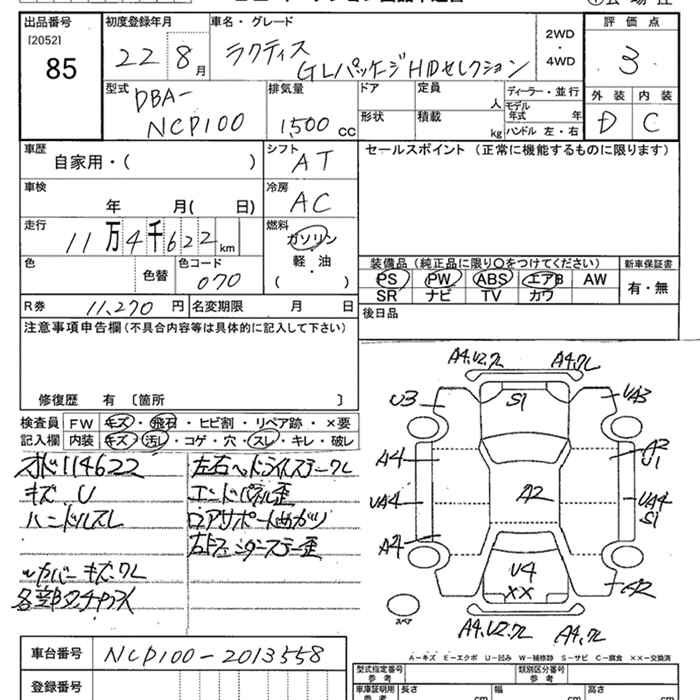 出品番号
[2052]
85
初度登録年月
22 8月
車名・グレード
ラクティス
GLパッケージHIDセレクション
2WD
・
4WD
評価点
3
外装 内装
D C
型式
DBA-
NCP100
排気量
1500 cc
ドア
形状
定員 人
積載 kg
ディーラー・並行
モデル年式 年
ハンドル 左・右
車歴
自家用・( )
シフト
AT
セールスポイント (正常に機能するものに限ります)
車検
年 月( 日)
冷房
AC
走行
11万4千622km
燃料
ガソリン
軽・油
( ・ )
色
色替
色コード
070
装備品 (純正品に限り○をつけてください)
PS PW ABS エアB AW
SR ナビ TV カワ
新車保証書
有・無
R券 11,270 円
名変期限 月 日
後日品
注意事項申告欄 (不具合内容等は具体的に記入して下さい)
修復歴 有 〔箇所 〕
検査員 FW キズ・飛石・ヒビ割・リペア跡・×要
記入欄 内装 キズ・汚レ・コゲ・穴・スレ・キレ・破レ
114622
キズ U
ハンドルスレ
カバーキズワレ
各部タッチ
左右ヘッドライトステーワレ
エンドパネル歪
ロアサポート曲がり
A4,U2,ワレ A4,ワレ
U3 S1 UA3
A4 A2 U1
UA4 A2 UA4 S1
A4
U4
XX
スペア
A4,U2,ワレ A4,ワレ
A-キズ E-エクボ U-凹み W-補修跡 S-サビ C-腐食 ××-交換済
車台番号 NCP100-2013558
登録番号
型式指定番号
参考
類別区分番号
参考
車庫証明用
参考
長さ cm
幅 cm
高さ cm